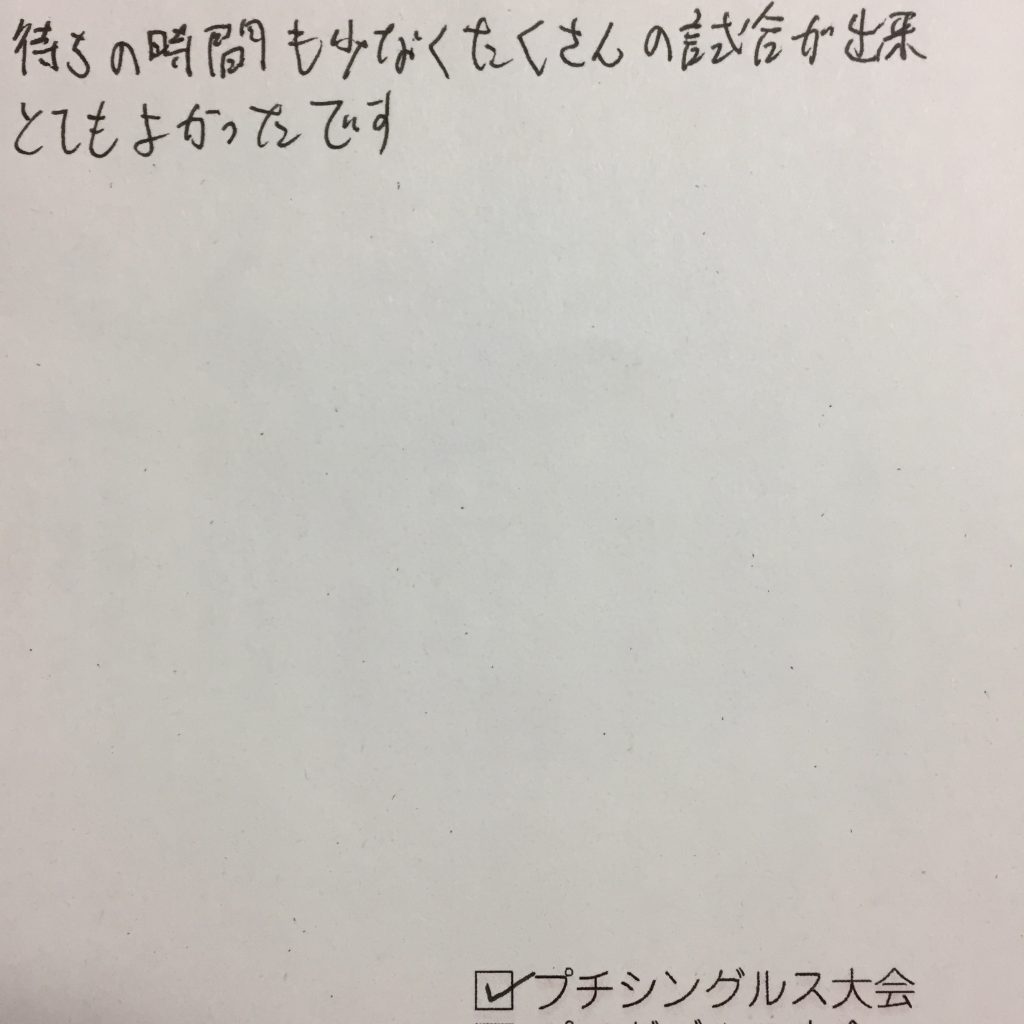 待ちの時間も少なくたくさんの試合が出来
とてもよかったです
プチシングルス大会